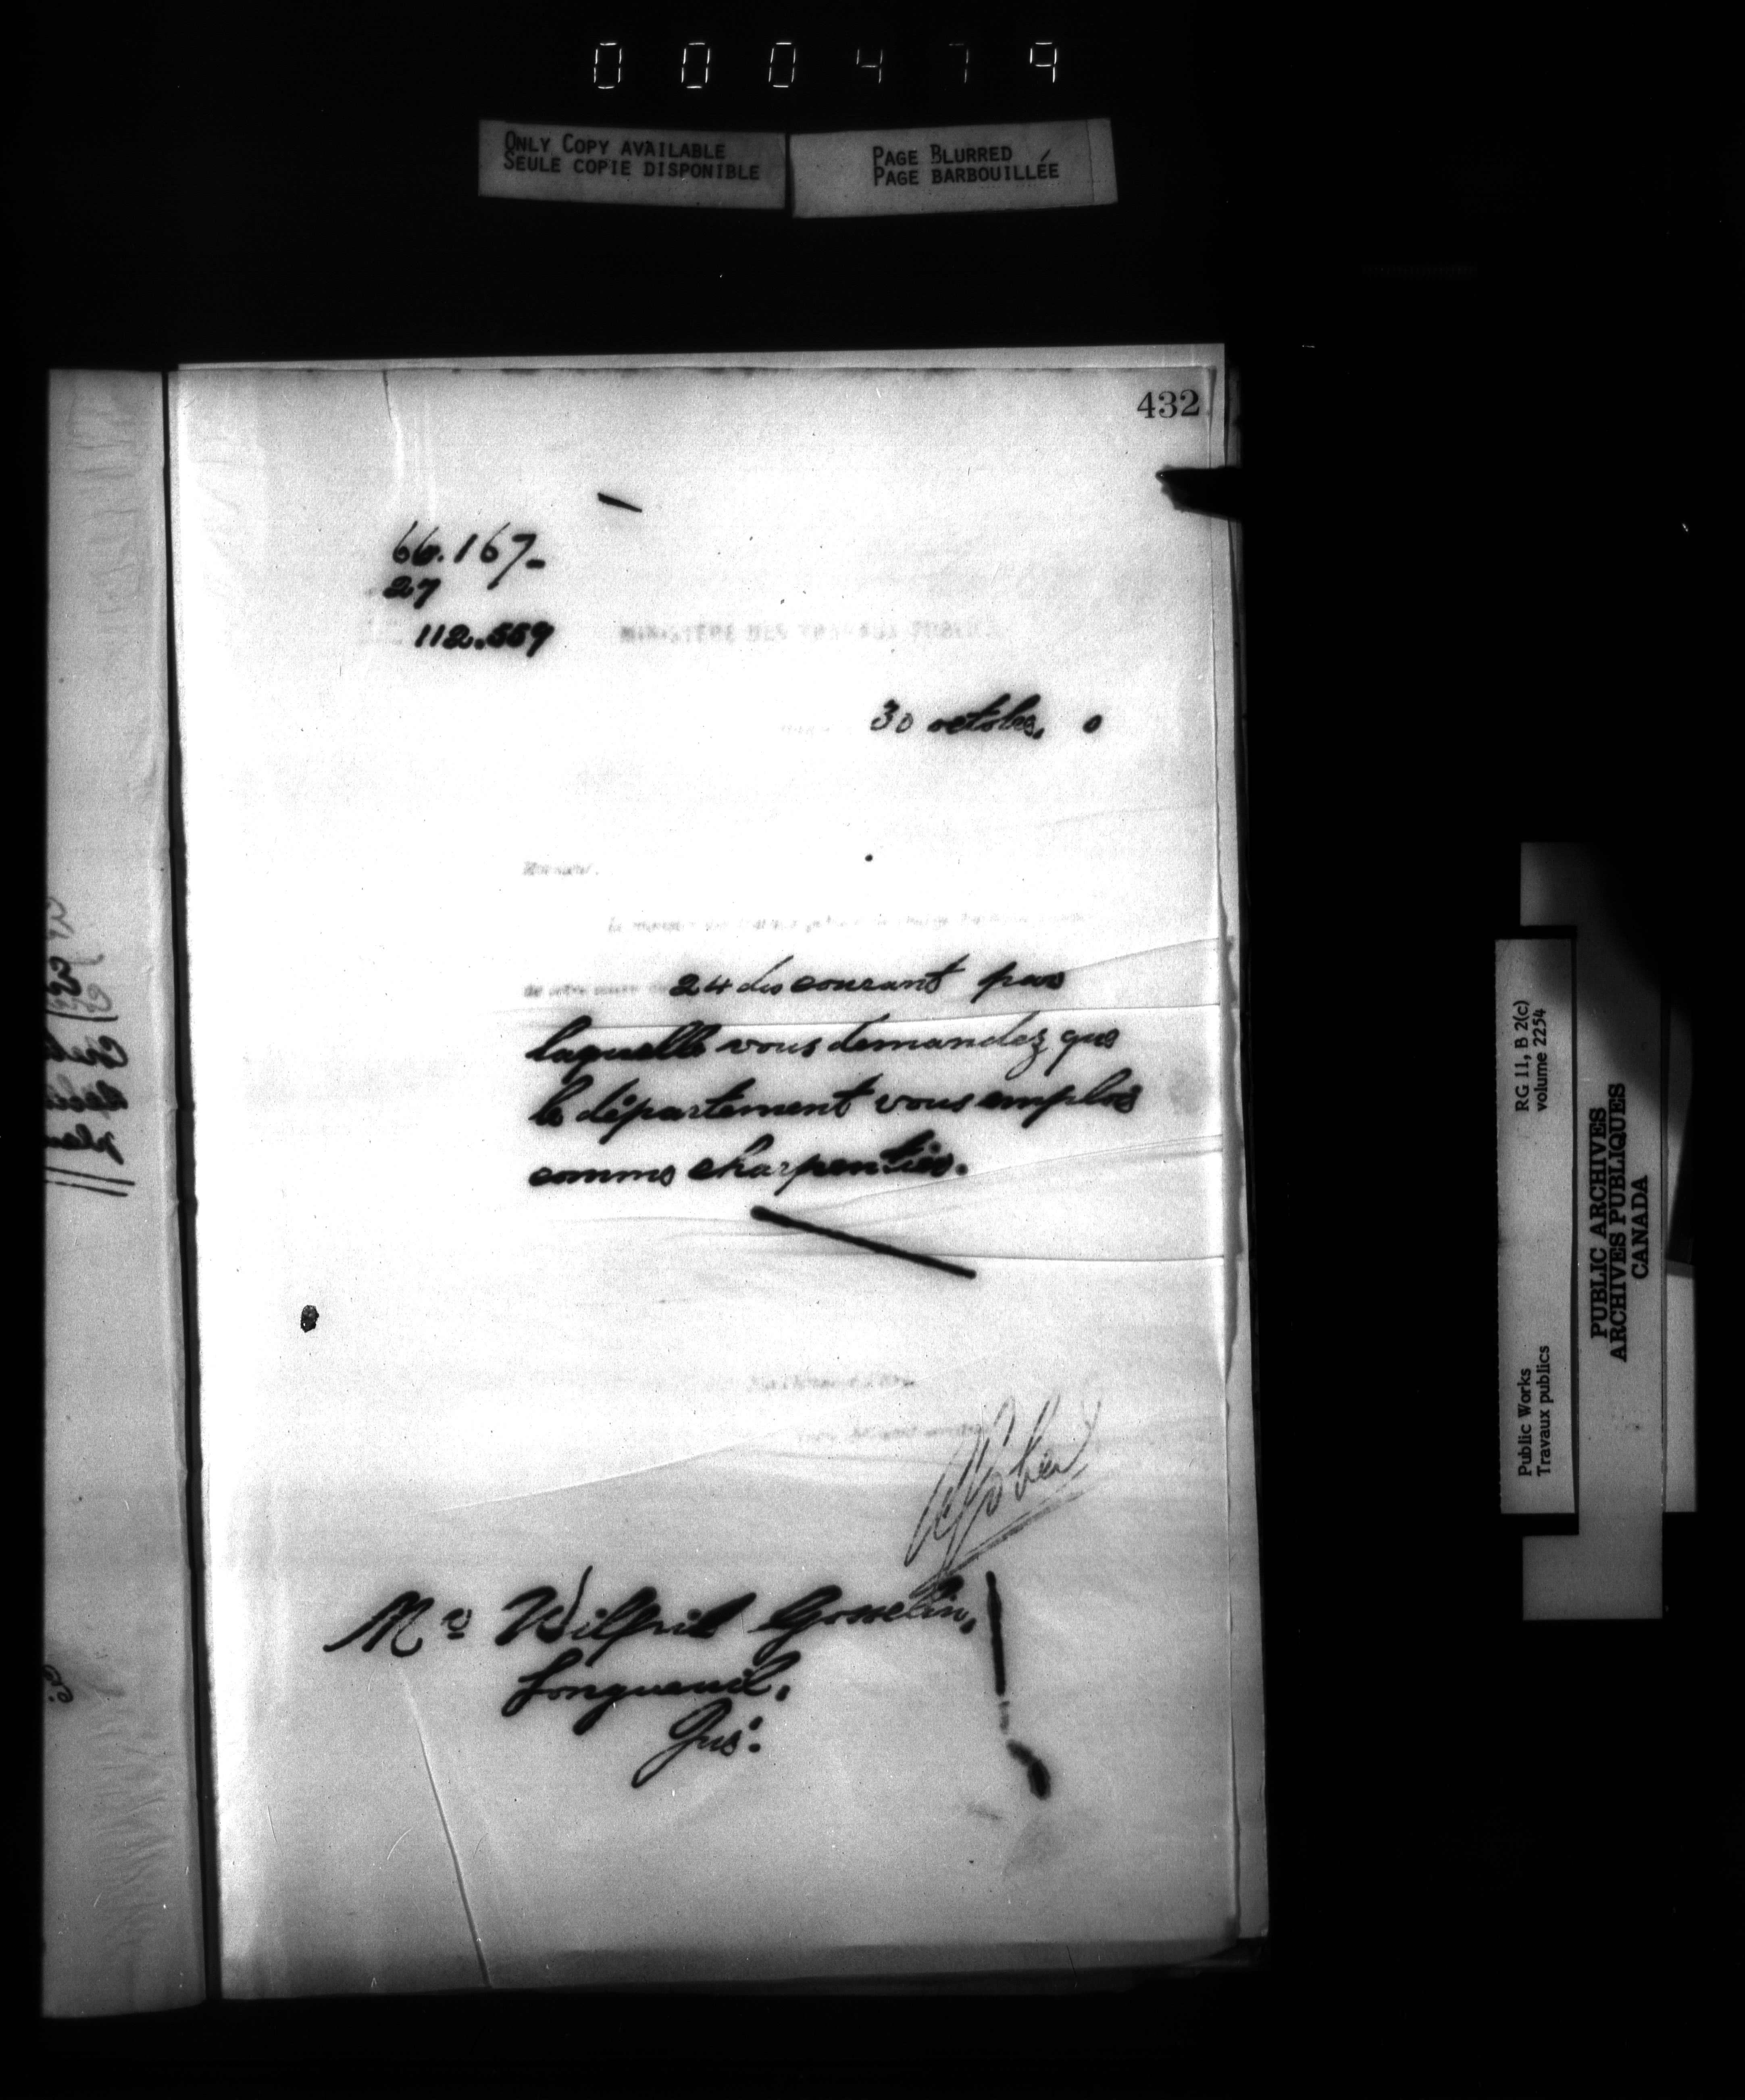 000479
ONLY COPY AVAILABLE
SEULE COPIE DISPONIBLE
PAGE BLURRED
PAGE BARBOUILLÉE
432
66.167-
27
112.559
MINISTÈRE DES TRAVAUX PUBLICS
30 octobre, 0
Monsieur,
de votre 24 du courant par
laquelle vous demandez que
le département vous emploie
comme charpentier.
Mr Wilfrid Gosselin,
Longueuil,
Qué:
RG 11, B 2(c)
volume 2254
Public Works
Travaux publics
PUBLIC ARCHIVES
ARCHIVES PUBLIQUES
CANADA